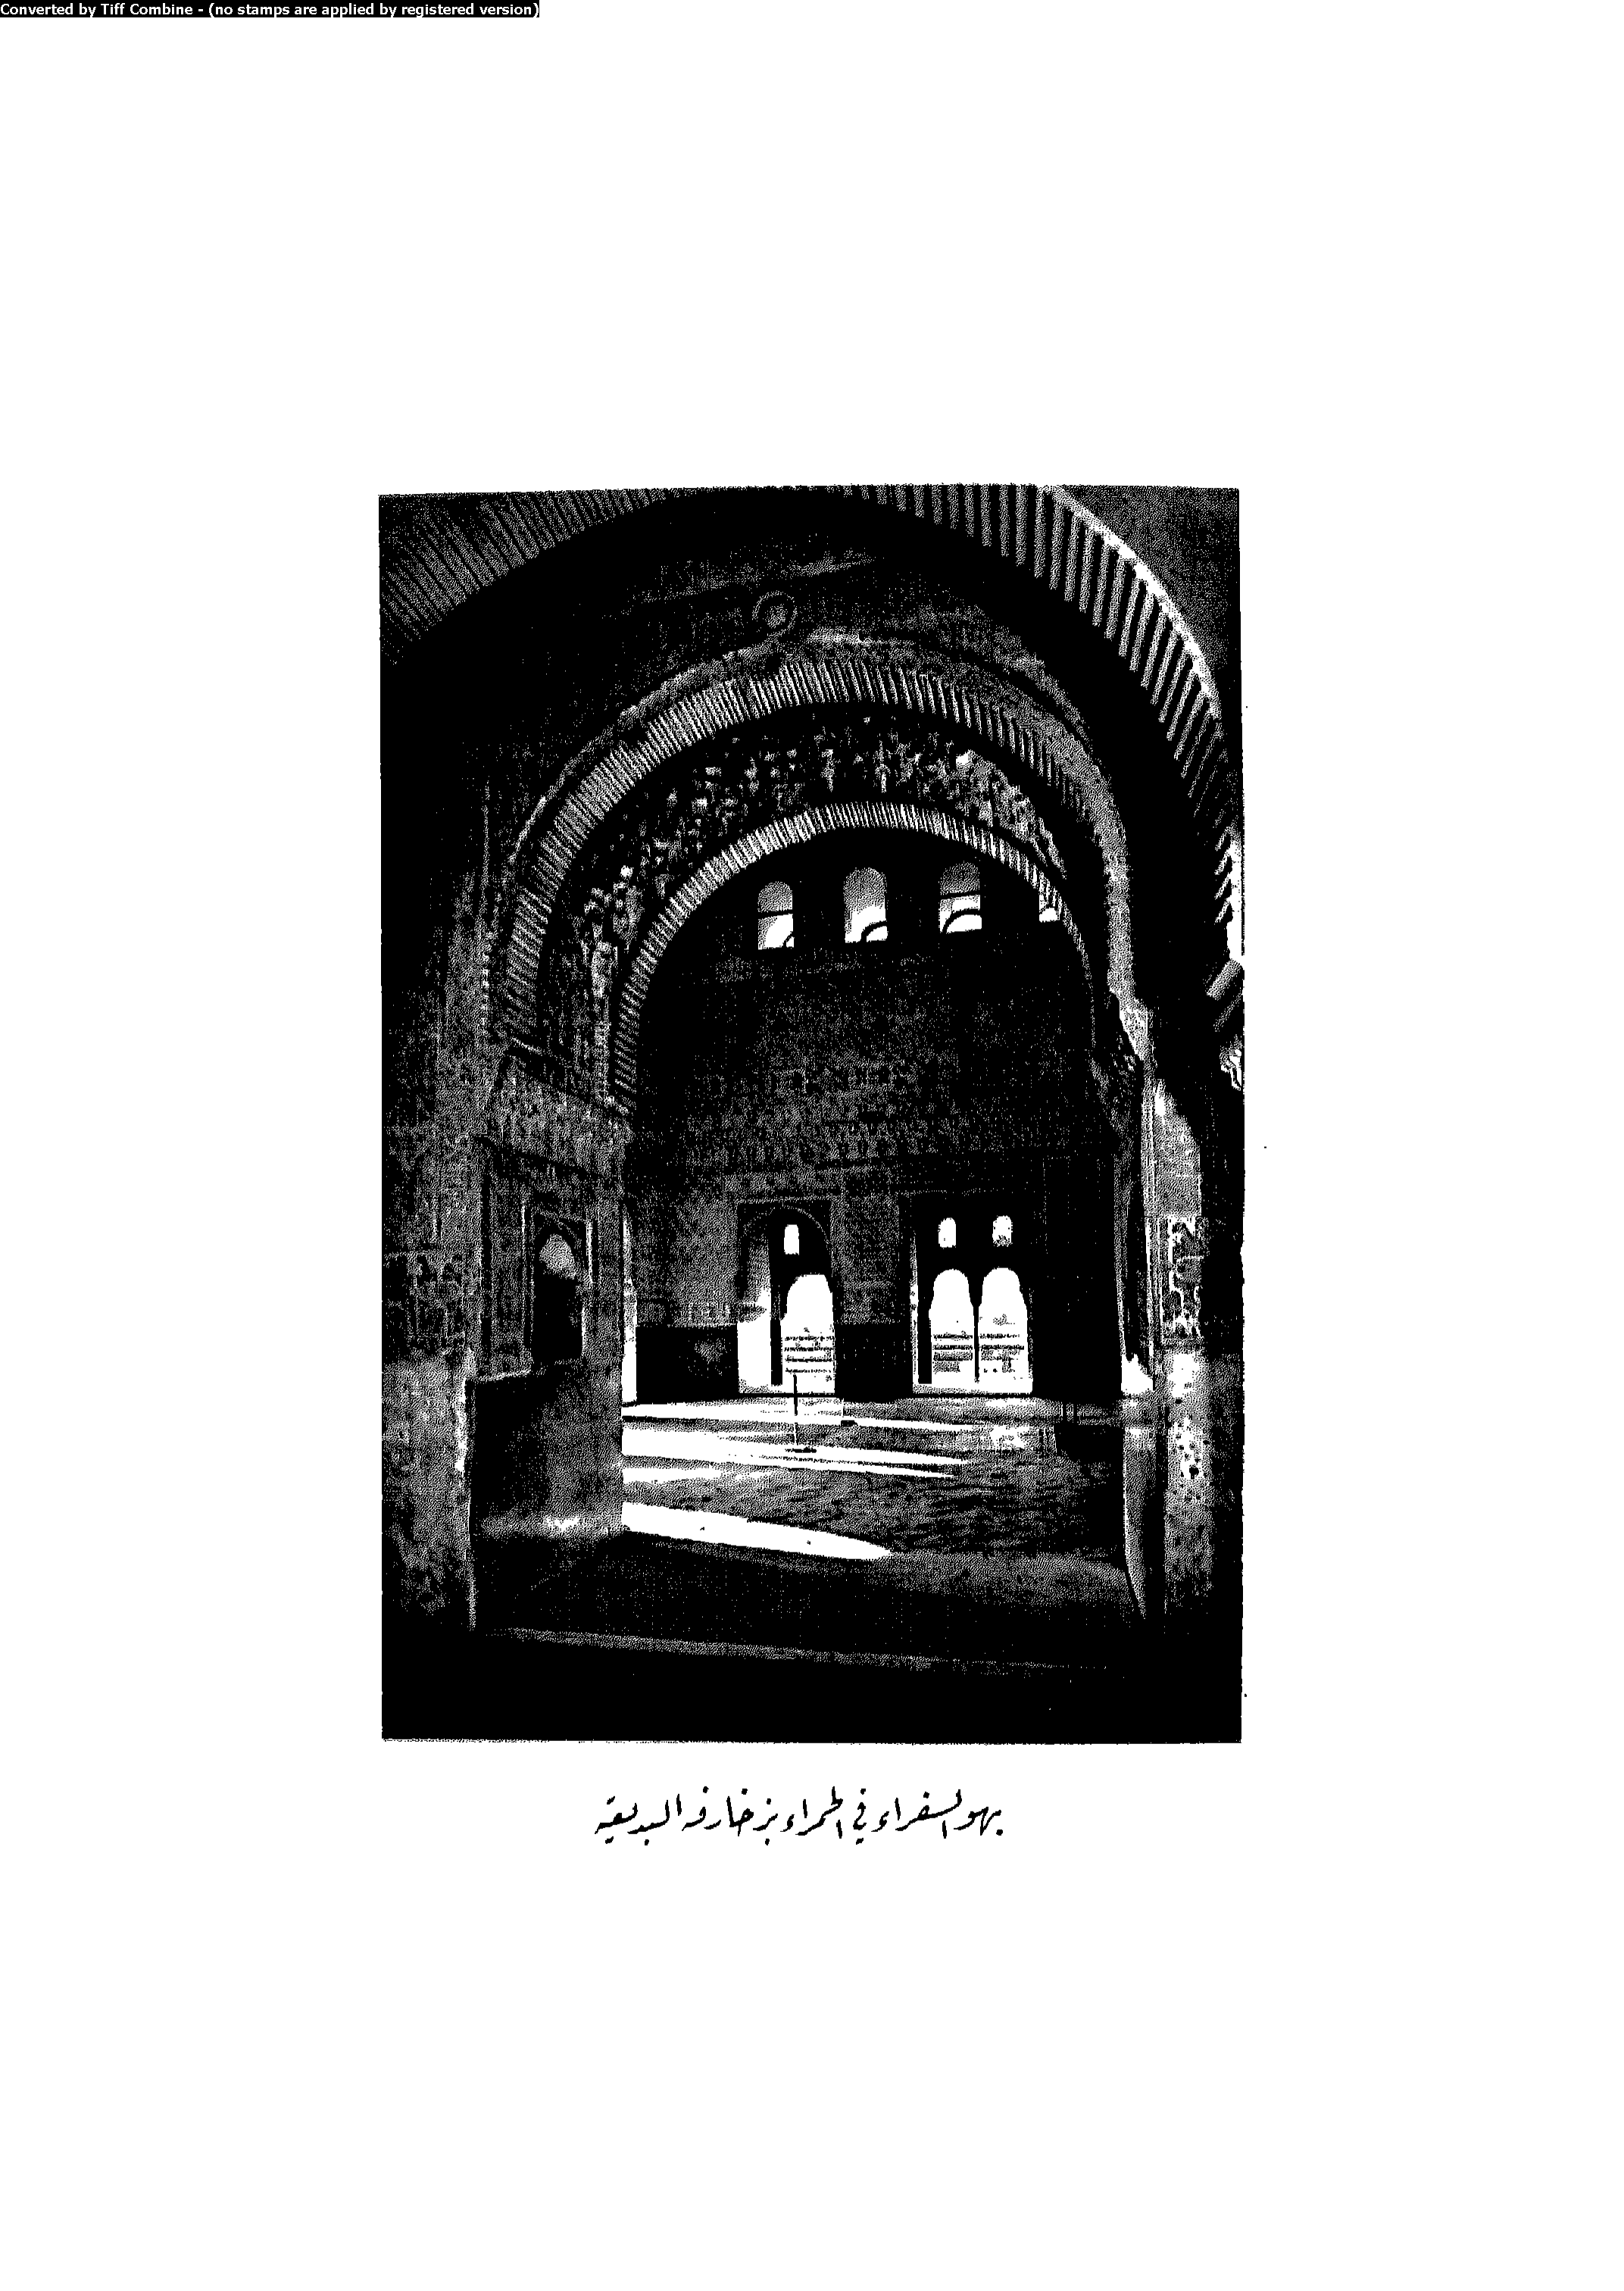 Converted by Tiff Combine - (no stamps are applied by registered version)
بهو السفراء في الحمراء بزخارفه البديعة